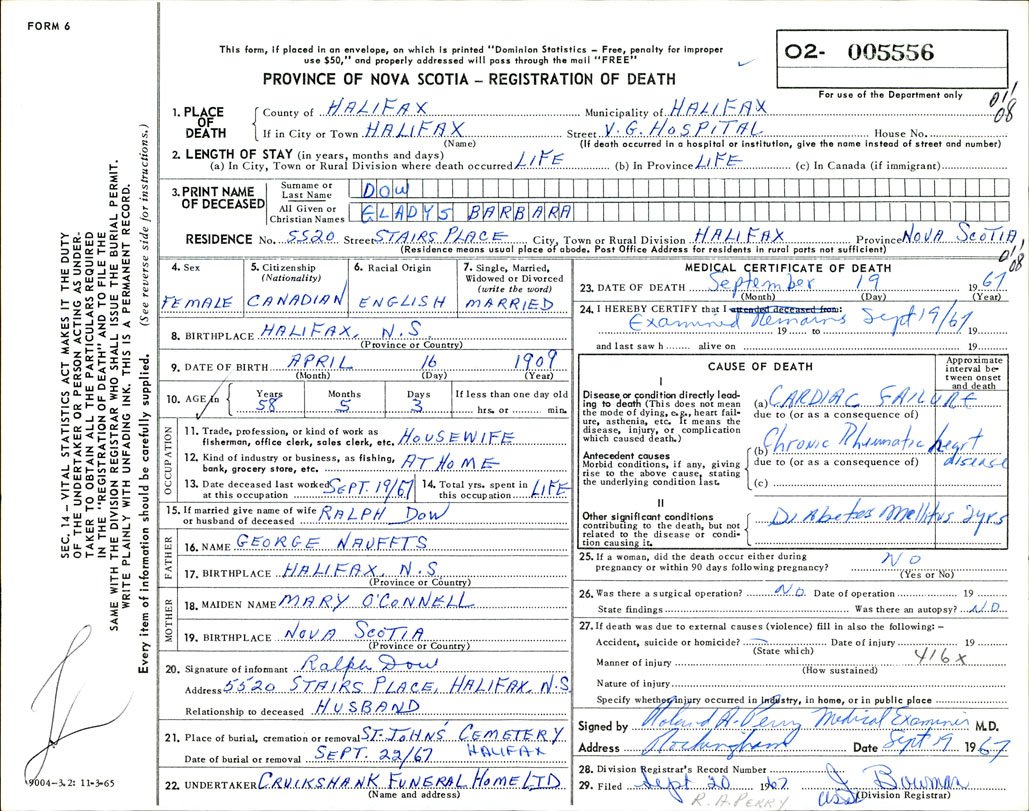 FORM 6
This form, if placed in an envelope, on which is printed "Dominion Statistics – Free, penalty for improper
use $50," and properly addressed will pass through the mail "FREE"
PROVINCE OF NOVA SCOTIA – REGISTRATION OF DEATH
O2- 005556
For use of the Department only
011
08
1. PLACE OF DEATH
County of HALIFAX Municipality of HALIFAX
If in City or Town HALIFAX Street V.G. HOSPITAL House No.
(Name) (If death occurred in a hospital or institution, give the name instead of street and number)
2. LENGTH OF STAY (in years, months and days)
(a) In City, Town or Rural Division where death occurred LIFE (b) In Province LIFE (c) In Canada (if immigrant)
3. PRINT NAME OF DECEASED
Surname or Last Name DOW
All Given or Christian Names GLADYS BARBARA
RESIDENCE No. 5520 Street STAIRS PLACE City, Town or Rural Division HALIFAX Province NOVA SCOTIA
(Residence means usual place of abode. Post Office Address for residents in rural parts not sufficient)
011
08
4. Sex FEMALE
5. Citizenship (Nationality) CANADIAN
6. Racial Origin ENGLISH
7. Single, Married, Widowed or Divorced (write the word) MARRIED
8. BIRTHPLACE HALIFAX, N.S.
(Province or Country)
9. DATE OF BIRTH APRIL 16 1909
(Month) (Day) (Year)
10. AGE in Years 58 Months 5 Days 3 If less than one day old hrs. or min.
OCCUPATION
11. Trade, profession, or kind of work as fisherman, office clerk, sales clerk, etc. HOUSEWIFE
12. Kind of industry or business, as fishing, bank, grocery store, etc. AT HOME
13. Date deceased last worked at this occupation SEPT. 19/67
14. Total yrs. spent in this occupation LIFE
15. If married give name of wife or husband of deceased RALPH DOW
FATHER
16. NAME GEORGE NAUFFTS
17. BIRTHPLACE HALIFAX, N.S.
(Province or Country)
MOTHER
18. MAIDEN NAME MARY O'CONNELL
19. BIRTHPLACE NOVA SCOTIA
(Province or Country)
20. Signature of informant Ralph Dow
Address 5520 STAIRS PLACE, HALIFAX, N.S.
Relationship to deceased HUSBAND
21. Place of burial, cremation or removal ST. JOHN'S CEMETERY
HALIFAX
Date of burial or removal SEPT. 22/67
22. UNDERTAKER CRUIKSHANK FUNERAL HOME LTD
(Name and address)
MEDICAL CERTIFICATE OF DEATH
23. DATE OF DEATH September 19 1967
(Month) (Day) (Year)
24. I HEREBY CERTIFY that I attended deceased from:
Examined Remains Sept 19/67
19 to 19
and last saw h alive on 19
CAUSE OF DEATH
Approximate interval between onset and death
I
Disease or condition directly leading to death (This does not mean the mode of dying, e.g., heart failure, asthenia, etc. It means the disease, injury, or complication which caused death.)
(a) CARDIAC FAILURE
due to (or as a consequence of)
Antecedent causes
Morbid conditions, if any, giving rise to the above cause, stating the underlying condition last.
(b) Chronic Rheumatic heart disease
due to (or as a consequence of)
(c)
II
Other significant conditions contributing to the death, but not related to the disease or condition causing it.
Diabetes Mellitus 2yrs
25. If a woman, did the death occur either during pregnancy or within 90 days following pregnancy? NO
(Yes or No)
26. Was there a surgical operation? NO Date of operation 19
State findings Was there an autopsy? NO
27. If death was due to external causes (violence) fill in also the following: –
Accident, suicide or homicide? – Date of injury 19
(State which)
Manner of injury 416x
(How sustained)
Nature of injury
Specify whether injury occurred in industry, in home, or in public place
Signed by Roland A. Perry Medical Examiner M.D.
Address Rockingham Date Sept 19 1967
28. Division Registrar's Record Number
29. Filed Sept 20 1967 J Bowman
asst (Division Registrar)
R.A. PERRY
SEC. 14 – VITAL STATISTICS ACT MAKES IT THE DUTY
OF THE UNDERTAKER OR PERSON ACTING AS UNDER-
TAKER TO OBTAIN ALL THE PARTICULARS REQUIRED
IN THE "REGISTRATION OF DEATH" AND TO FILE THE
SAME WITH THE DIVISION REGISTRAR WHO SHALL ISSUE THE BURIAL PERMIT.
WRITE PLAINLY WITH UNFADING INK. THIS IS A PERMANENT RECORD.
Every item of information should be carefully supplied. (See reverse side for instructions.)
9004–3.2: 11-3-65